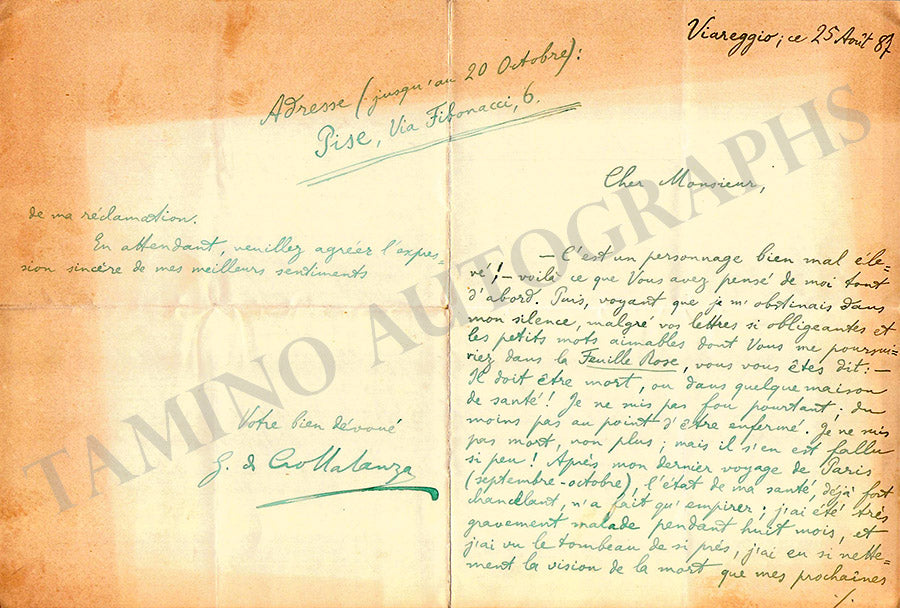 Viareggio; ce 25 Août 87
Cher Monsieur,
— C'est un personnage bien mal éle=
vé!, — voilà ce que Vous avez pensé de moi tout
d'abord. Puis, voyant que je m'obstinais dans
mon silence, malgré vos lettres si obligeantes et
les petits mots aimables dont Vous me poursui=
viez dans la Feuille Rose, vous vous êtes dit: —
Il doit être mort, ou dans quelque maison
de santé! Je ne suis pas fou pourtant; du
moins pas au point d'être enfermé. Je ne suis
pas mort, non plus; mais il s'en est fallu
si peu! Après mon dernier voyage de Paris
(septembre-octobre), l'état de ma santé, déjà fort
chancelant, n'a fait qu'empirer; j'ai été très
gravement malade pendant huit mois, et
j'ai vu le tombeau de si près, j'ai eu si nette=
ment la vision de la mort que mes prochaines
./.
Adresse (jusqu'au 20 Octobre):
Pise, Via Fibonacci, 6.
de ma réclamation.
En attendant, veuillez agréer l'expres=
sion sincère de mes meilleurs sentiments
Votre bien dévoué
G. di Crollalanza
TAMINO AUTOGRAPHS